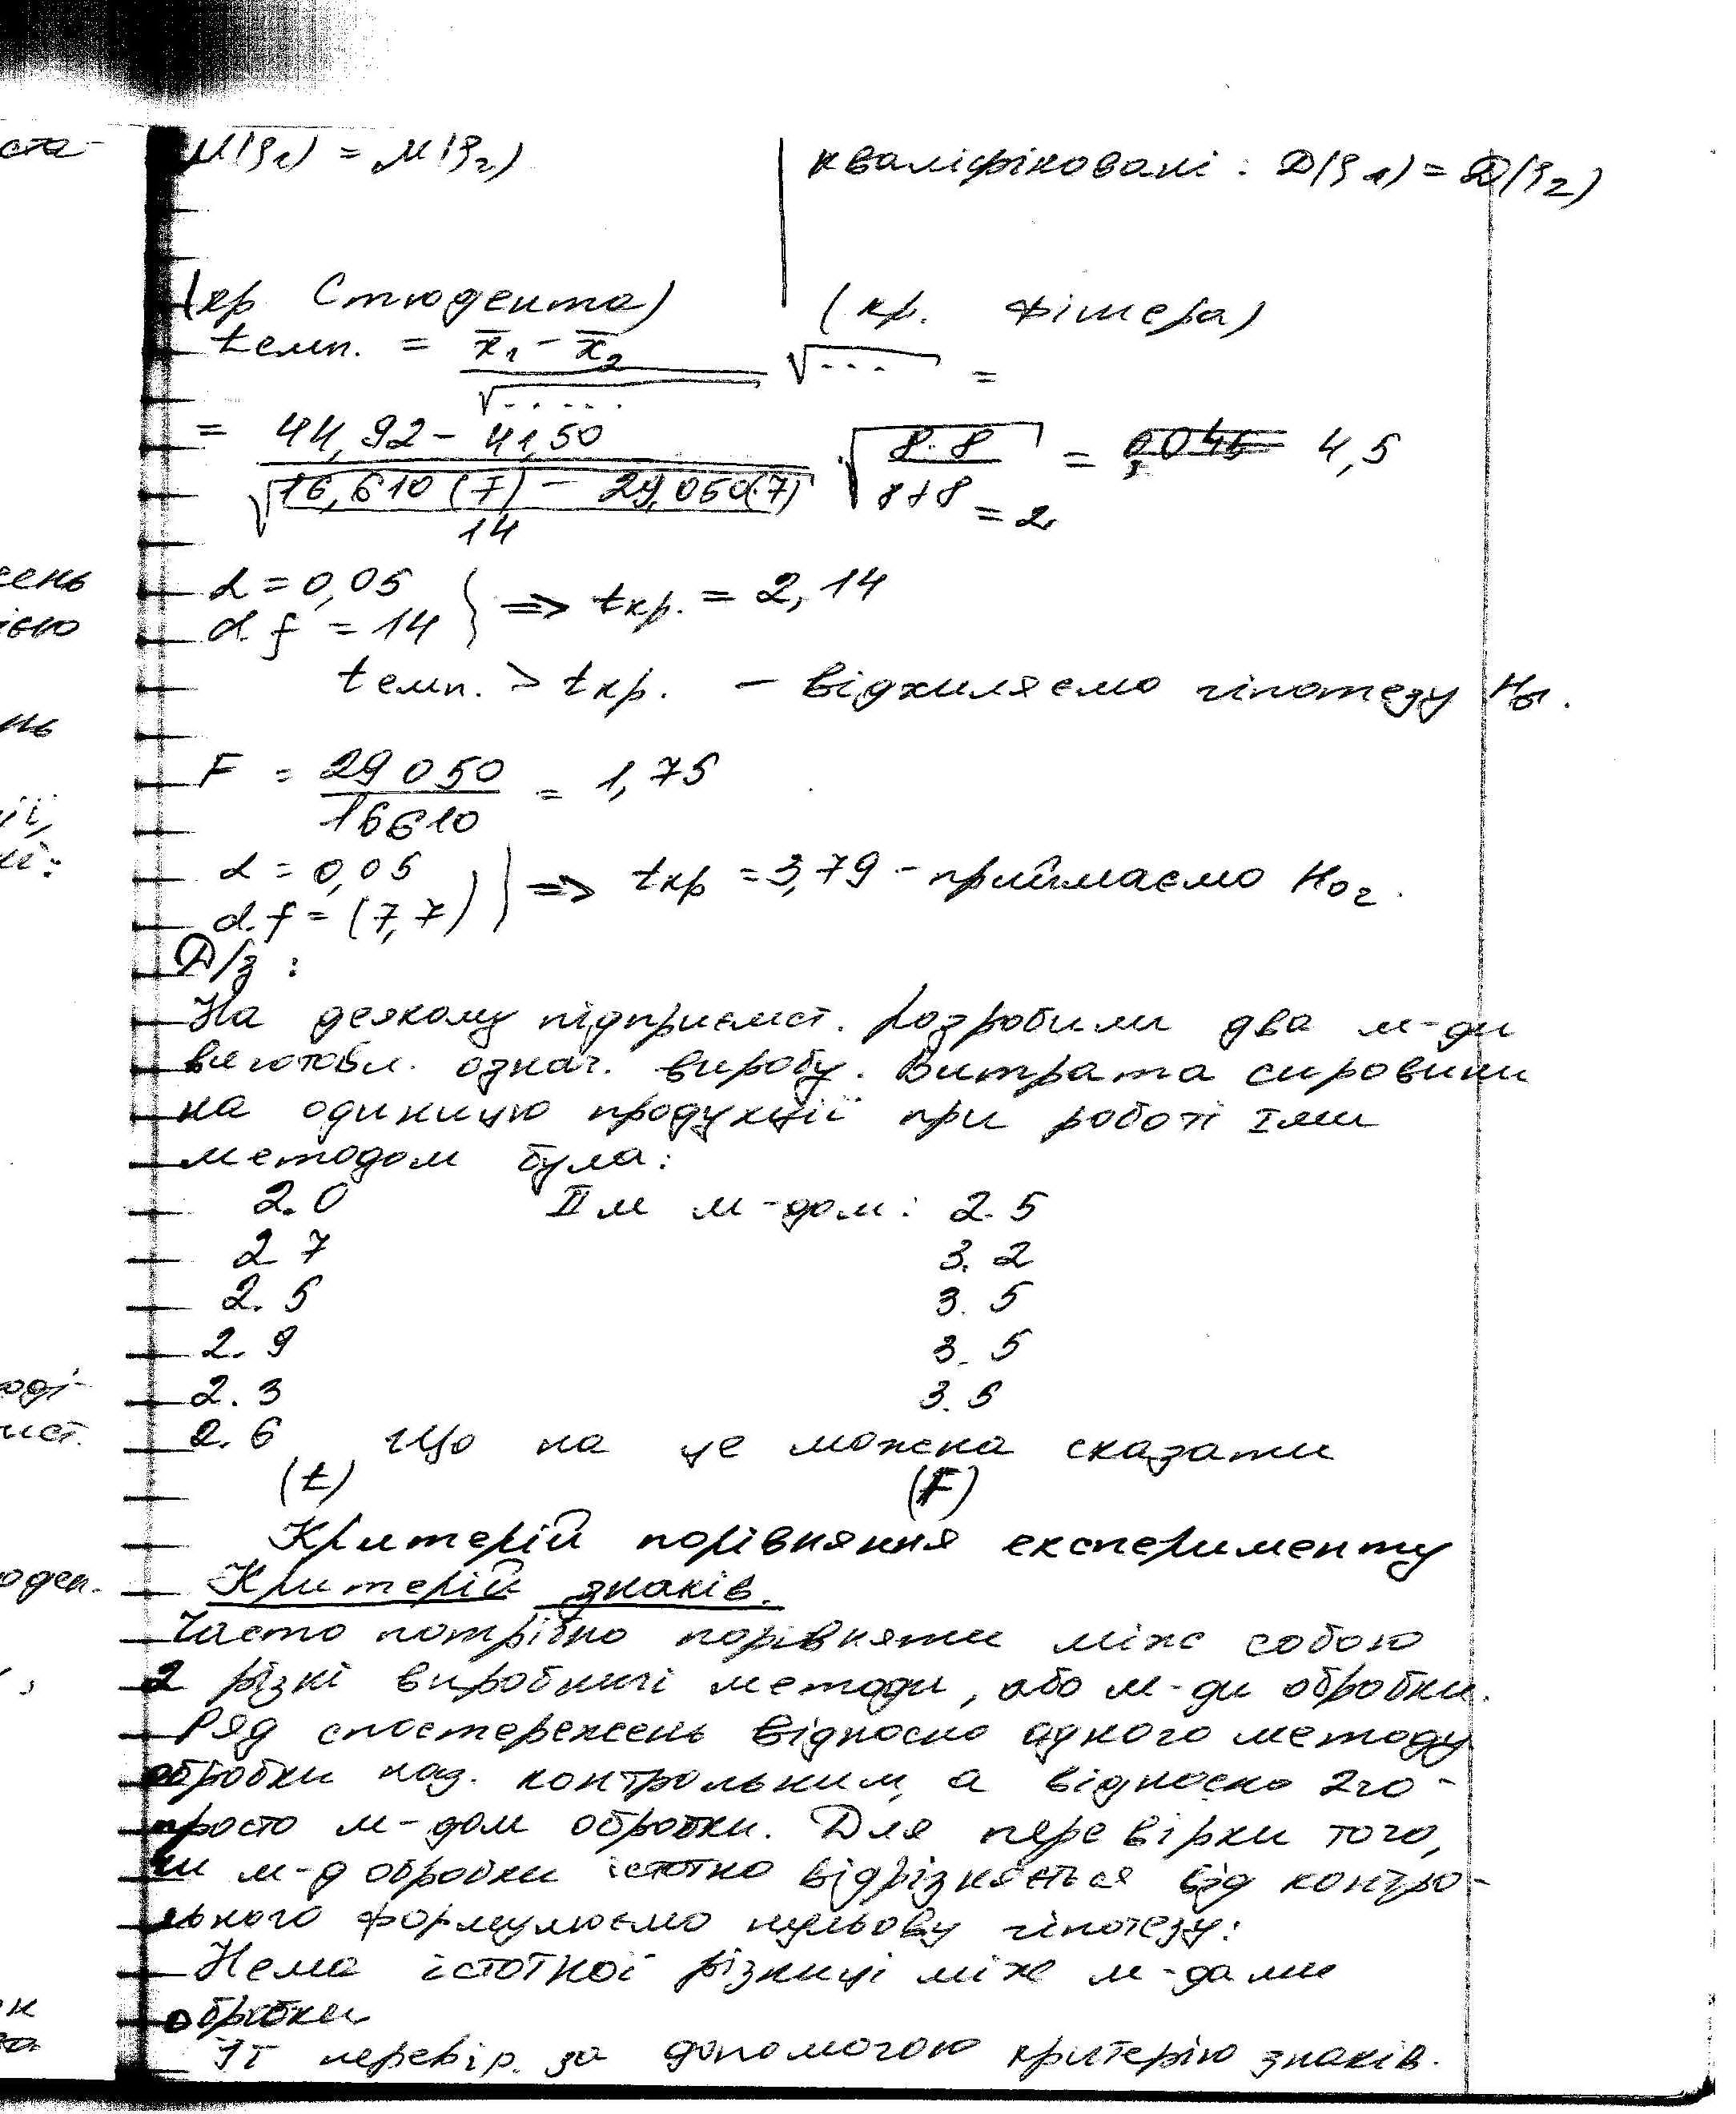 M(ξ1) = M(ξ2) | кваліфіковані : D(ξ1) = D(ξ2)
(кр Стюдента) (кр. Фішера)
tемп. = x̄1 - x̄2 / √..... √... =
= 44,92 - 41,50 / √16,610(7) - 29,050(7) / 14 √8·8 / 8+8 = 2 = 4,5
α = 0,05
d.f = 14 } => tкр. = 2,14
tемп. > tкр. - відхиляємо гіпотезу H01.
F = 29050 / 16610 = 1,75
α = 0,05
d.f = (7,7) } => tкр = 3,79 - приймаємо H02.
Д/з :
На деякому підприємст. розробили два м-ди
виготовл. означ. виробу. Витрата сировини
на одиницю продукції при роботі Iми
методом була:
2.0 IIм м-дом: 2.5
2 7 3. 2
2. 5 3. 5
2. 9 3. 5
2. 3 3. 5
2. 6 Що на це можна сказати
(t) (F)
Критерій порівняння експерименту
Критерій знаків.
Часто потрібно порівняти між собою
2 різні виробничі методи, або м-ди обробки.
Ряд спостережень відносно одного методу
обробки наз. контрольним, а відносно 2го -
просто м-дом обробки. Для перевірки того,
чи м-д обробки істотно відрізняється від контро-
льного формулюємо нульову гіпотезу:
Нема істотної різниці між м-дами
обробки
Її перевір. за допомогою критерію знаків.